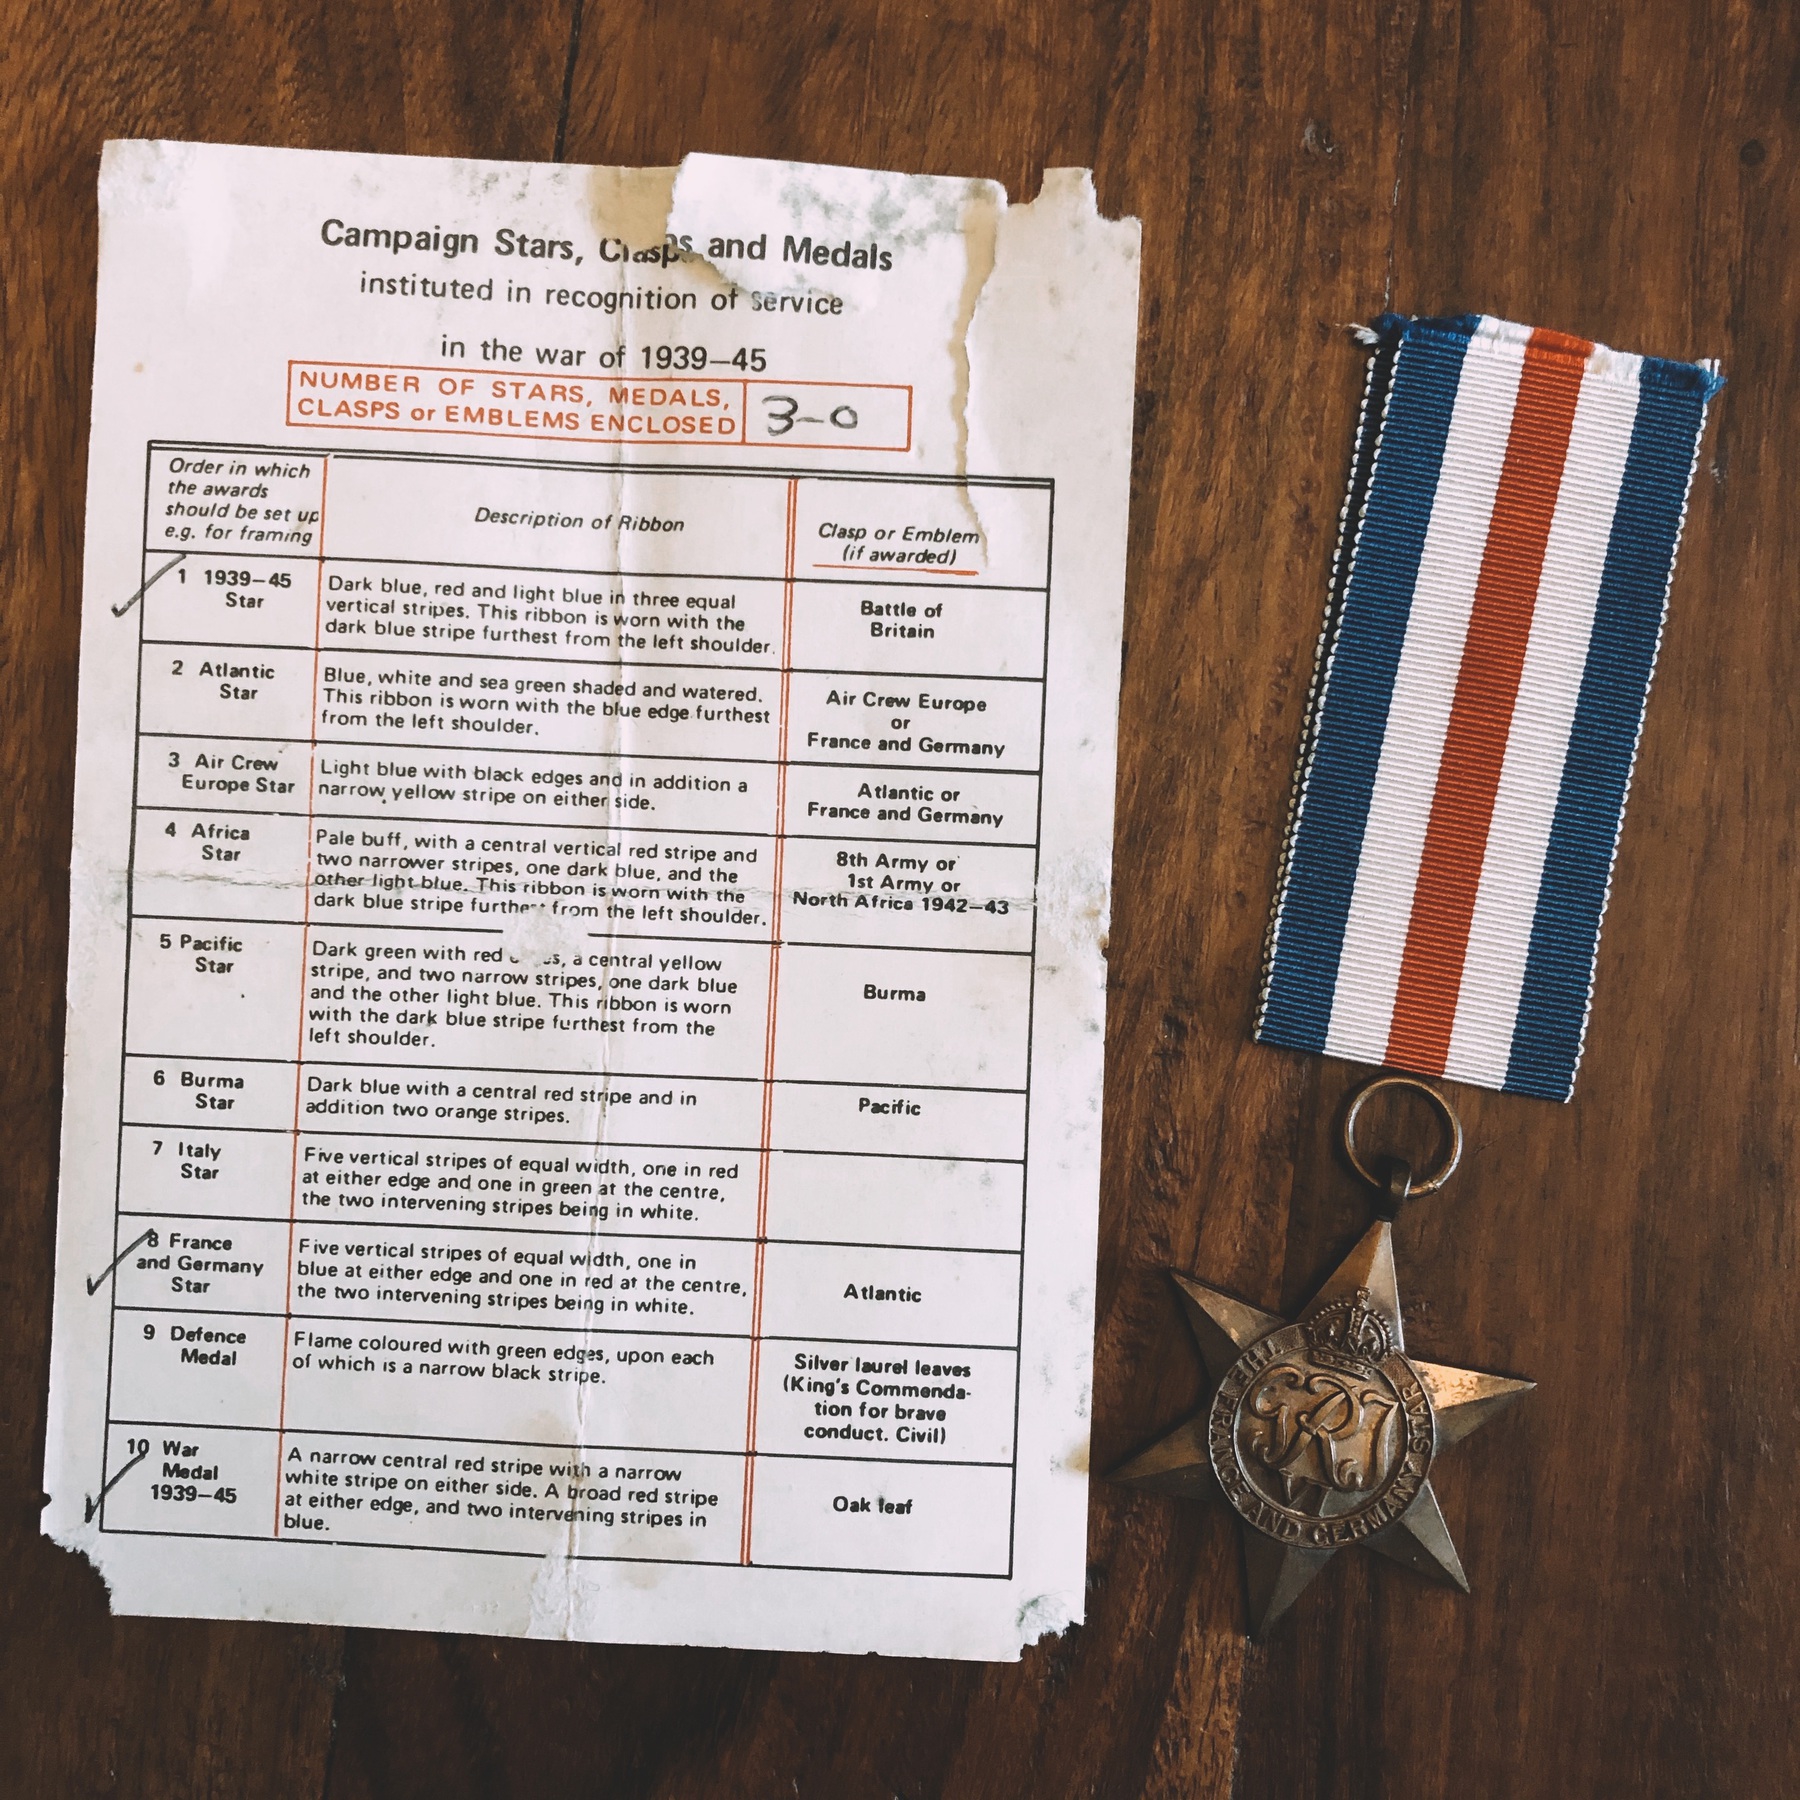 Campaign Stars, Clasps and Medals
instituted in recognition of service
in the war of 1939–45
NUMBER OF STARS, MEDALS,
CLASPS or EMBLEMS ENCLOSED
3–0
Order in which
the awards
should be set up
e.g. for framing
Description of Ribbon
Clasp or Emblem
(if awarded)
1 1939–45
Star
Dark blue, red and light blue in three equal
vertical stripes. This ribbon is worn with the
dark blue stripe furthest from the left shoulder.
Battle of
Britain
2 Atlantic
Star
Blue, white and sea green shaded and watered.
This ribbon is worn with the blue edge furthest
from the left shoulder.
Air Crew Europe
or
France and Germany
3 Air Crew
Europe Star
Light blue with black edges and in addition a
narrow yellow stripe on either side.
Atlantic or
France and Germany
4 Africa
Star
Pale buff, with a central vertical red stripe and
two narrower stripes, one dark blue, and the
other light blue. This ribbon is worn with the
dark blue stripe furthest from the left shoulder.
8th Army or
1st Army or
North Africa 1942–43
5 Pacific
Star
Dark green with red a central yellow
stripe, and two narrow stripes, one dark blue
and the other light blue. This ribbon is worn
with the dark blue stripe furthest from the
left shoulder.
Burma
6 Burma
Star
Dark blue with a central red stripe and in
addition two orange stripes.
Pacific
7 Italy
Star
Five vertical stripes of equal width, one in red
at either edge and one in green at the centre,
the two intervening stripes being in white.
8 France
and Germany
Star
Five vertical stripes of equal width, one in
blue at either edge and one in red at the centre,
the two intervening stripes being in white.
Atlantic
9 Defence
Medal
Flame coloured with green edges, upon each
of which is a narrow black stripe.
Silver laurel leaves
(King's Commenda-
tion for brave
conduct. Civil)
10 War
Medal
1939–45
A narrow central red stripe with a narrow
white stripe on either side. A broad red stripe
at either edge, and two intervening stripes in
blue.
Oak leaf
GRI
VI
THE FRANCE AND GERMANY STAR